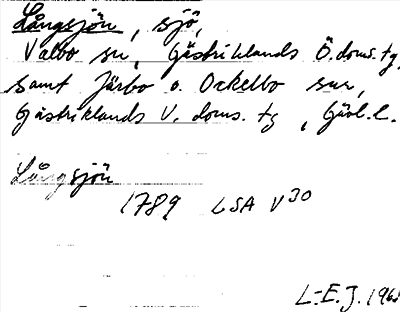 Långsjön, sjö,
Valbo sn, Gästriklands Ö. doms. tg,
samt Järbo o. Ockelbo snr,
Gästriklands V. doms. tg, Gävl. l.
Långsjön
1789 LSA V30
L-E. J. 196